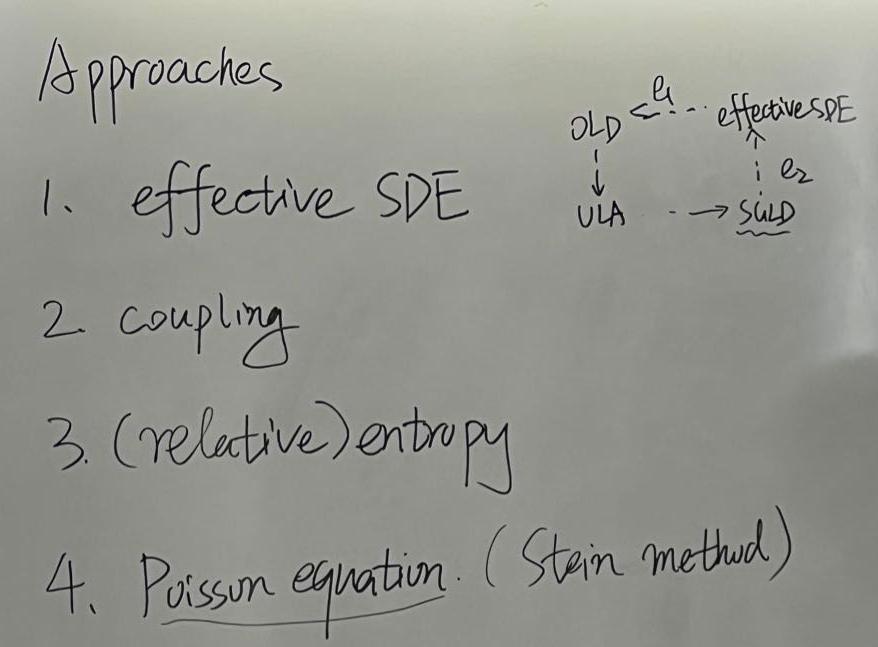 Approaches
1. effective SDE
2. coupling
3. (relative) entropy
4. Poisson equation. (Stein method)
OLD <--- e1 --- effective SDE
e2
ULA --> SGLD